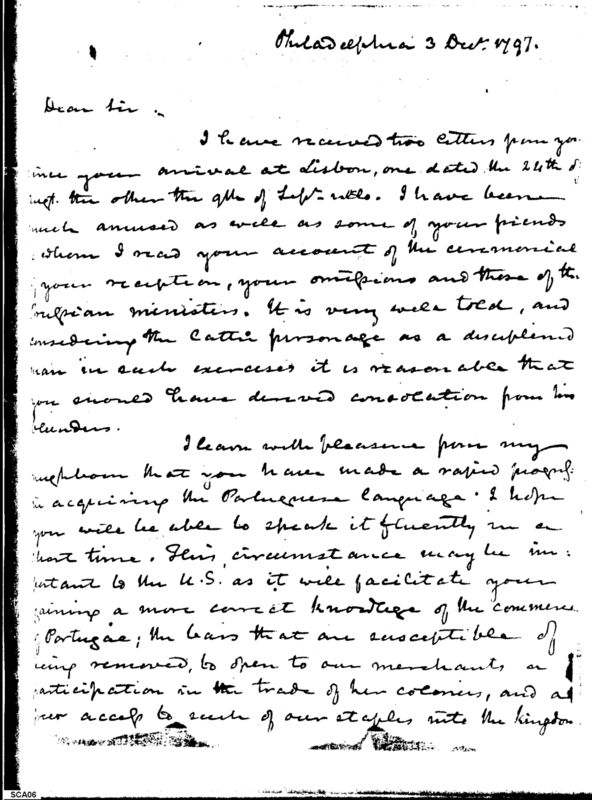 Philadelphia 3 Decr. 1797.
Dear Sir.
I have received two letters from you
ince your arrival at Lisbon, one dated the 24th
ugt. the other the 9th of Sepr. ulto. I have been
much amused as well as some of your friends
whom I read your account of the ceremonial
your reception, your omissions and those of the
russian ministers. It is very well told, and
onsidering the latter personage as a disciplined
man in such exercises it is reasonable that
you should have derived consolation from his
blunders.
I learn with pleasure from my
neighbour that you have made a rapid progress
in acquiring the Portuguese language. I hope
you will be able to speak it fluently in a
short time. This circumstance may be im:
portant to the U.S. as it will facilitate your
gaining a more correct knowlege of the commerce
of Portugal; the bars that are susceptible of
eing removed, to open to our merchants a
participation in the trade of her colonies, and a
access to such of our staples into the kingdom
SCA06